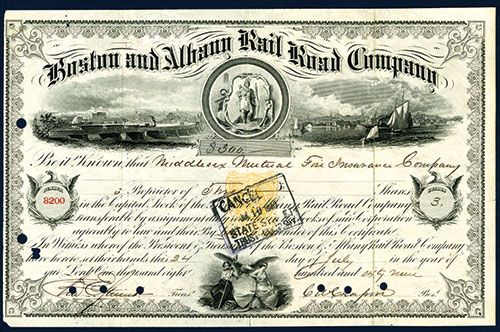 Boston and Albany Rail Road Company
$300
Be it Known, that Middlesex Mutual Fire Insurance Company
NUMBER
8200
is Proprietor of Three Shares
SHARES
3
in the Capital Stock of the Boston & Albany Rail Road Company
transferable by assignment in the books of said Corporation
agreeably to law and their By-Laws on surrender of this Certificate
In Witness whereof the President & Treasurer of the Boston & Albany Rail Road Company
have hereunto set their hands this 24 day of July in the year of
our Lord one thousand eight hundred and sixty nine
CANCELLED
STATE STREET
TRUST
Treas.
C. W. Chapin Pres.